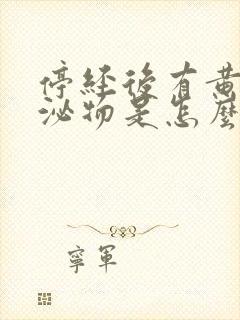 停经後有黄
泌物是怎麼
寧軍